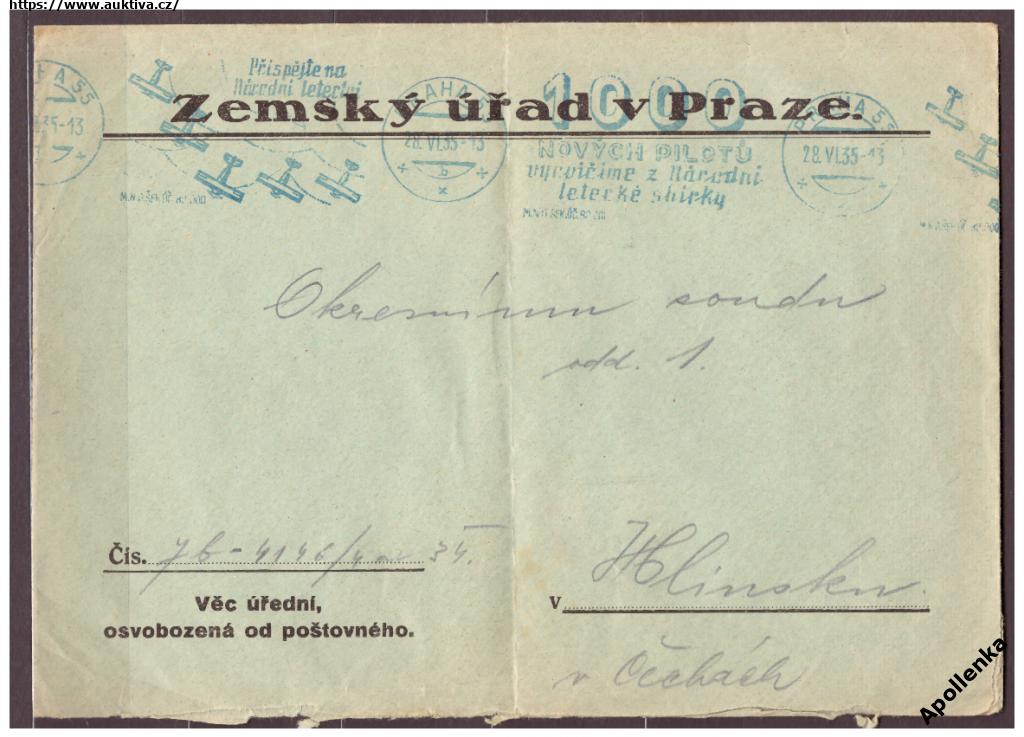 https://www.auktiva.cz/
Přispějte na
Národní letectví
1000
NOVÝCH PILOTŮ
vycvičíme z Národní
letecké sbírky
PRAHA 55
28.VI.35-13
b
PRAHA 55
28.VI.35-13
HA 55
35-13
Zemský úřad v Praze.
Okresnímu soudu
odd. 1.
Čís. 7b-4146/4 34.
Věc úřední,
osvobozená od poštovného.
v Hlinsku
v Čechách
Apollenka